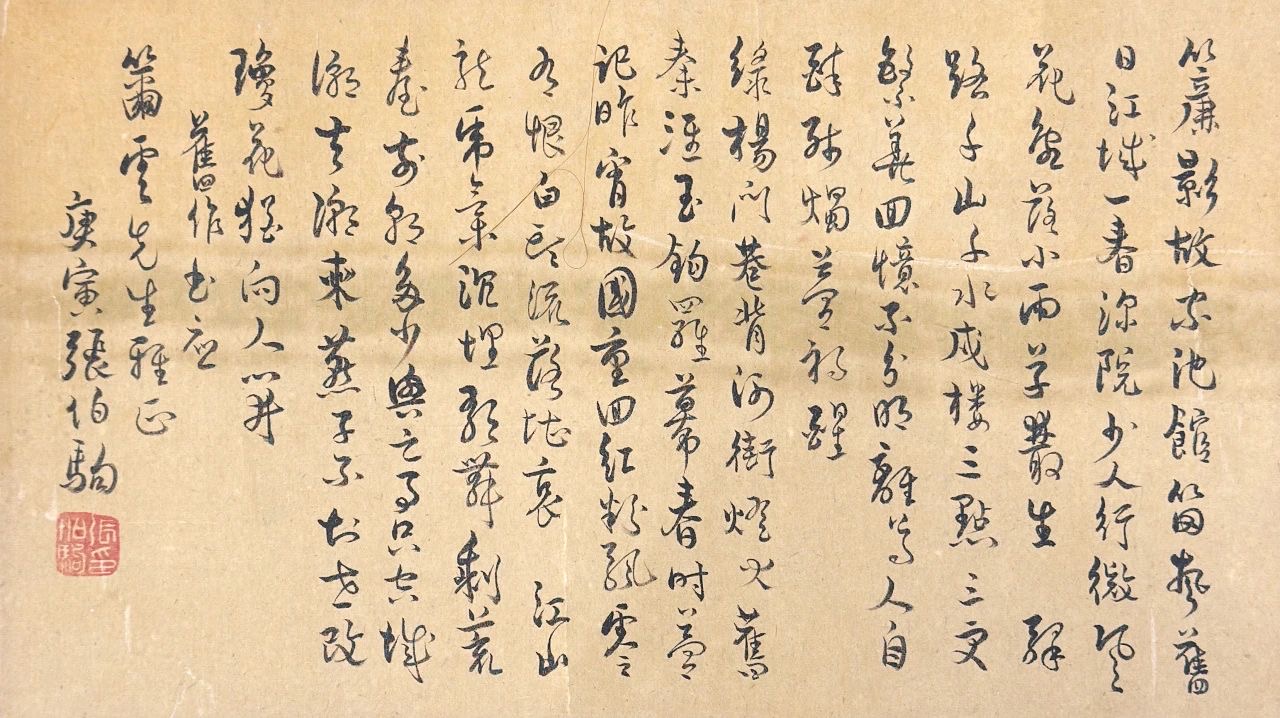 簾影故家池館笛聲舊
日江城一春深院少人行微風
花亂落小雨草叢生 驛
路千山千水戍樓三點三更
繁華回憶不分明離尊人自
醉殘燭夢初醒
綠楊門巷背河街燈火舊
秦淮玉鉤羅幕春時夢
記昨宵故國重回紅粉飄零
有恨白頭流落堪哀 江山
龍虎氣沉埋歌舞剩荒
臺前朝多少興亡事只空城
潮去潮來燕子不知世改
瓊花猶向人開
舊作書應
籋雲先生雅正
庚寅張伯駒
張印伯駒